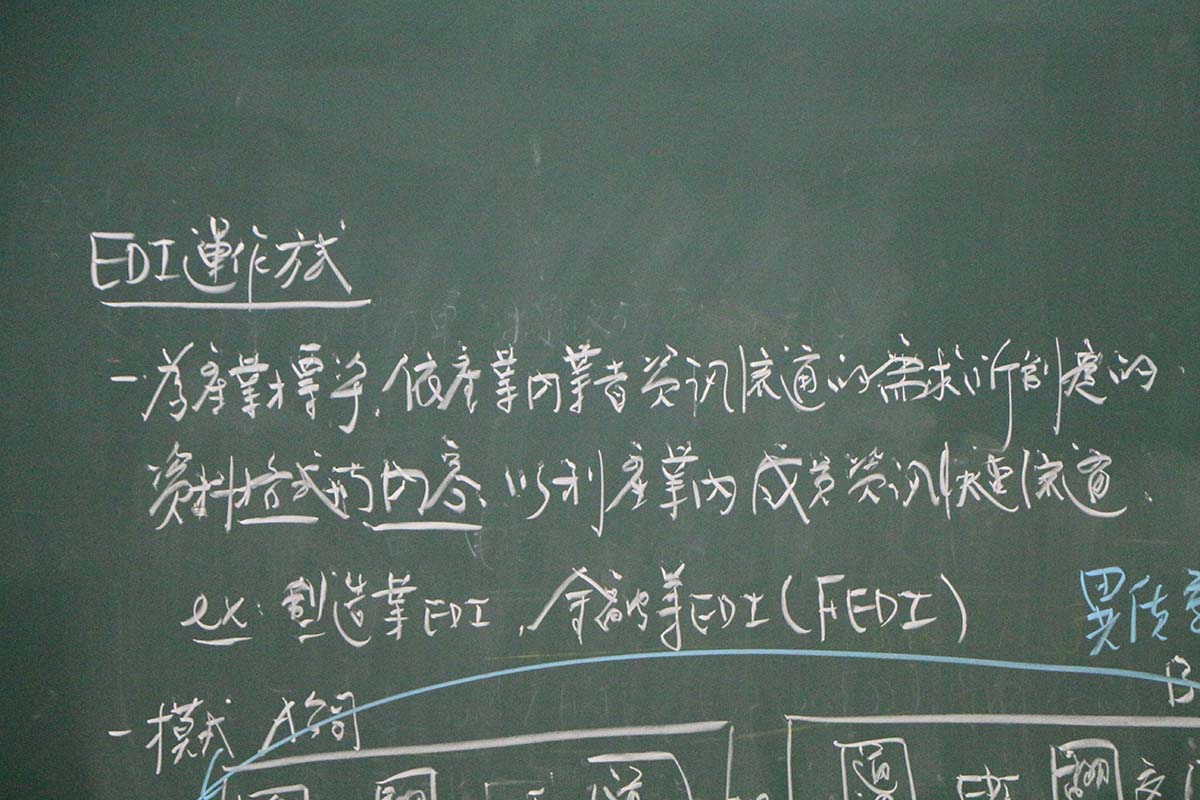 EDI運作方式
一.為產業標準,依產業內業者資訊流通的需求所制定的
資料格式與內容,以利產業內成員資訊快速流通.
ex.製造業EDI,金融業EDI(FEDI)
異質
一模式 A公司
B
EDI 翻